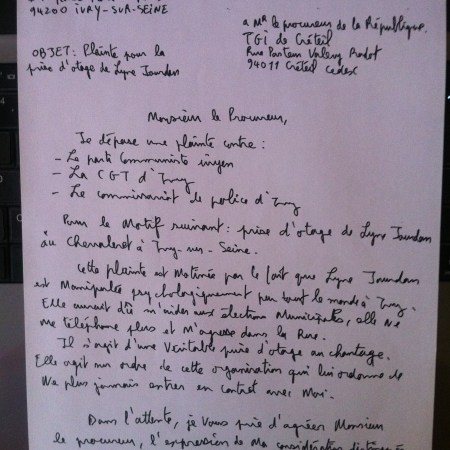 94200 IVRY-SUR-SEINE
a Mr le procureur de la République.
TGI de Créteil
Rue Pasteur Valery Radot
94011 Créteil cedex
OBJET: Plainte pour la
prise d'otage de Lyne Jourdan
Monsieur le Procureur,
Je dépose une plainte contre :
- Le parti Communiste ivryen
- La CGT d'Ivry
- Le commissariat de police d'Ivry
Pour le Motif suivant : prise d'otage de Lyne Jourdan
au Chevaleret à Ivry-sur-Seine.
Cette plainte est Motivée par le fait que Lyne Jourdan
est Manipulée psychologiquement par tout le monde à Ivry.
Elle aurait dû m'aider aux élections Municipales, elle Ne
me téléphone plus et M'agresse dans la Rue.
Il s'agit d'une Véritable prise d'otage au chantage.
Elle agit sur ordre de cette organisation qui lui ordonne de
Ne plus jamais entrer en contact avec Moi.
Dans l'attente, je Vous prie d'agréer Monsieur
le procureur, l'expression de Ma considération distinguée